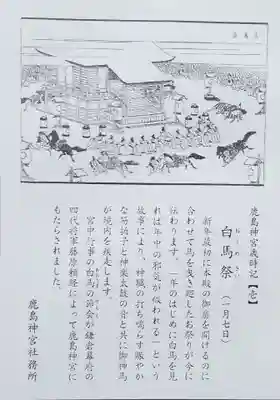 鹿島神宮歳時記【壱】
白馬祭（一月七日）
新年最初に本殿の御扉を開けるのに
合わせて馬を曳き廻したお祭りが今に
伝わります。一年のはじめに白馬を見
れば年中の邪気が祓われる」という
故事により、神職の打ち鳴らす賑やか
な笏拍子と神楽太鼓の音と共に御神馬
が境内を疾走します。
宮中行事の白馬の節会が鎌倉幕府の
四代将軍藤原頼経によって鹿島神宮に
もたらされました。
鹿島神宮社務所